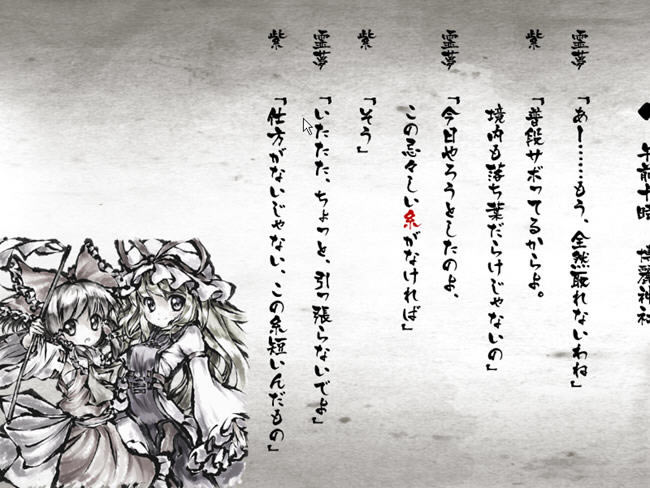 午前十時 博麗神社
霊夢 「あー……もう、全然取れないわね」
紫 「普段サボってるからよ。
境内も落ち葉だらけじゃないの」
霊夢 「今日やろうとしたのよ、
この忌々しい糸がなければ」
紫 「そう」
霊夢 「いたたた、ちょっと、引っ張らないでよ」
紫 「仕方がないじゃない、この糸短いんだもの」